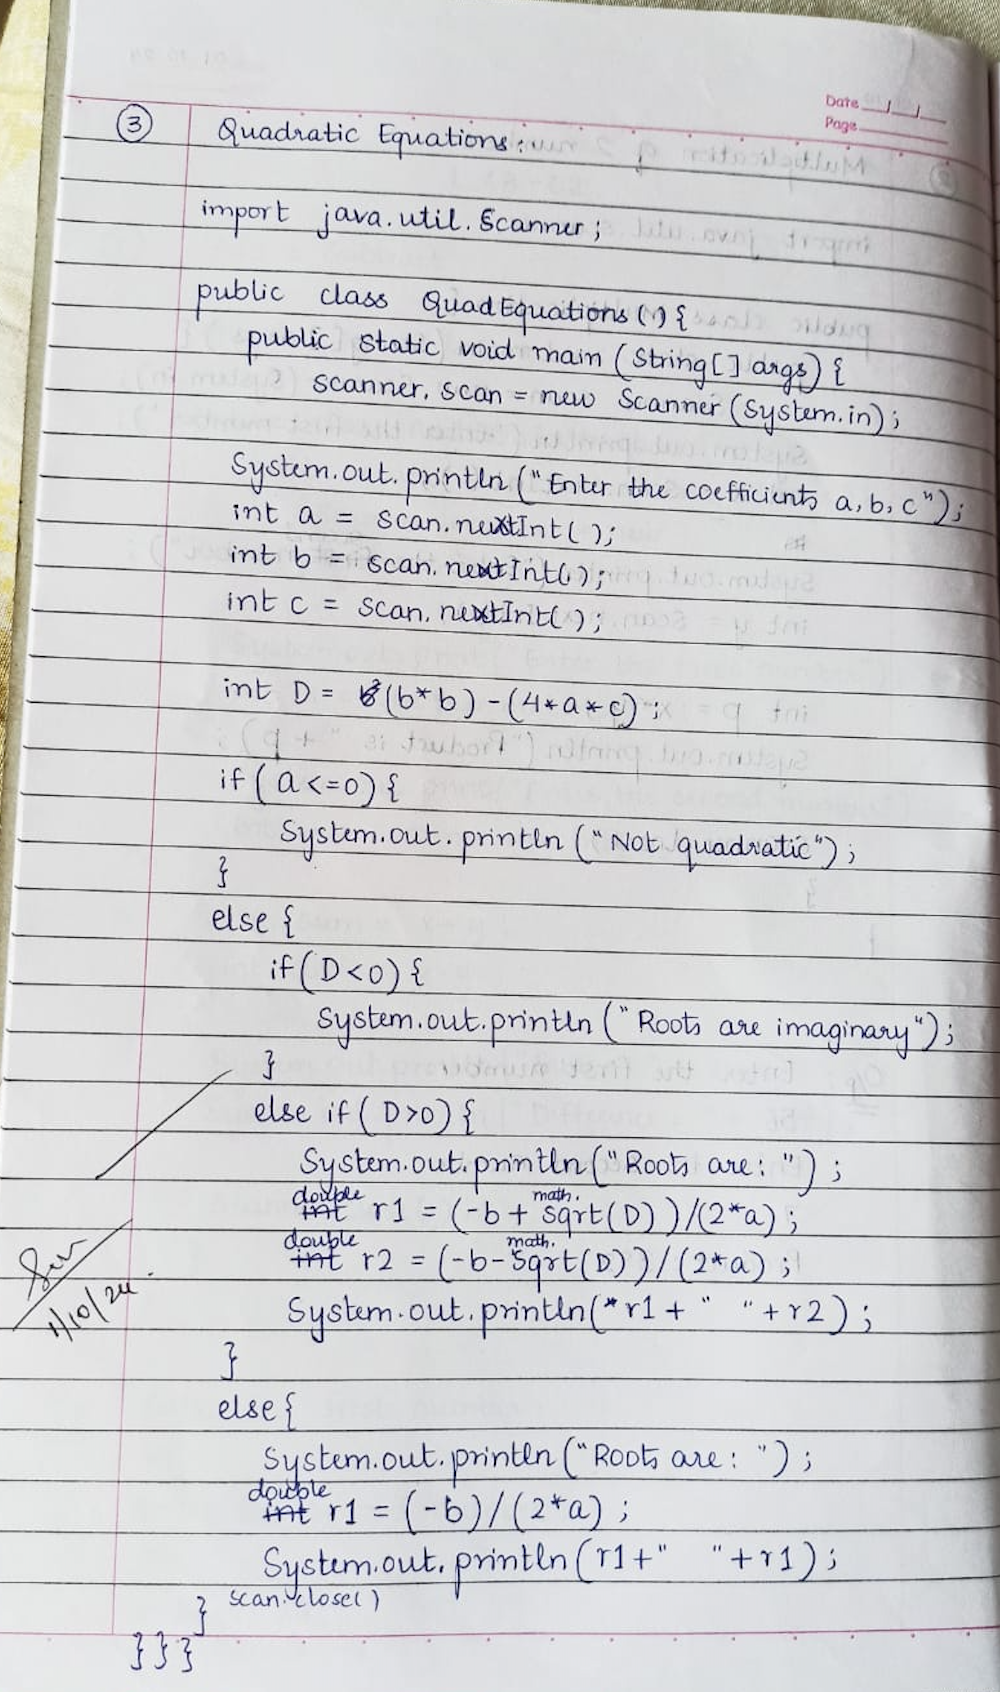 Date __/__/__
Page
3 Quadratic Equations:
import java.util.Scanner;
public class QuadEquations(){
public static void main (String[] args) {
scanner. scan = new Scanner (System.in);
System.out.println ("Enter the coefficients a, b, c");
int a = scan.nextInt();
int b = scan.nextInt();
int c = scan.nextInt();
int D = (b*b) - (4*a*c);
if (a<=0) {
System.out.println ("Not quadratic");
}
else {
if (D<0) {
System.out.println ("Roots are imaginary");
}
else if (D>0) {
System.out.println ("Roots are: ");
double math.
int r1 = (-b + sqrt(D))/(2*a);
double math.
int r2 = (-b - sqrt(D))/(2*a);
System.out.println(*r1 + " " + r2);
}
1/10/24.
else {
System.out.println ("Roots are: ");
double
int r1 = (-b)/(2*a);
System.out.println (r1+" "+r1);
} scan.close()
}}}